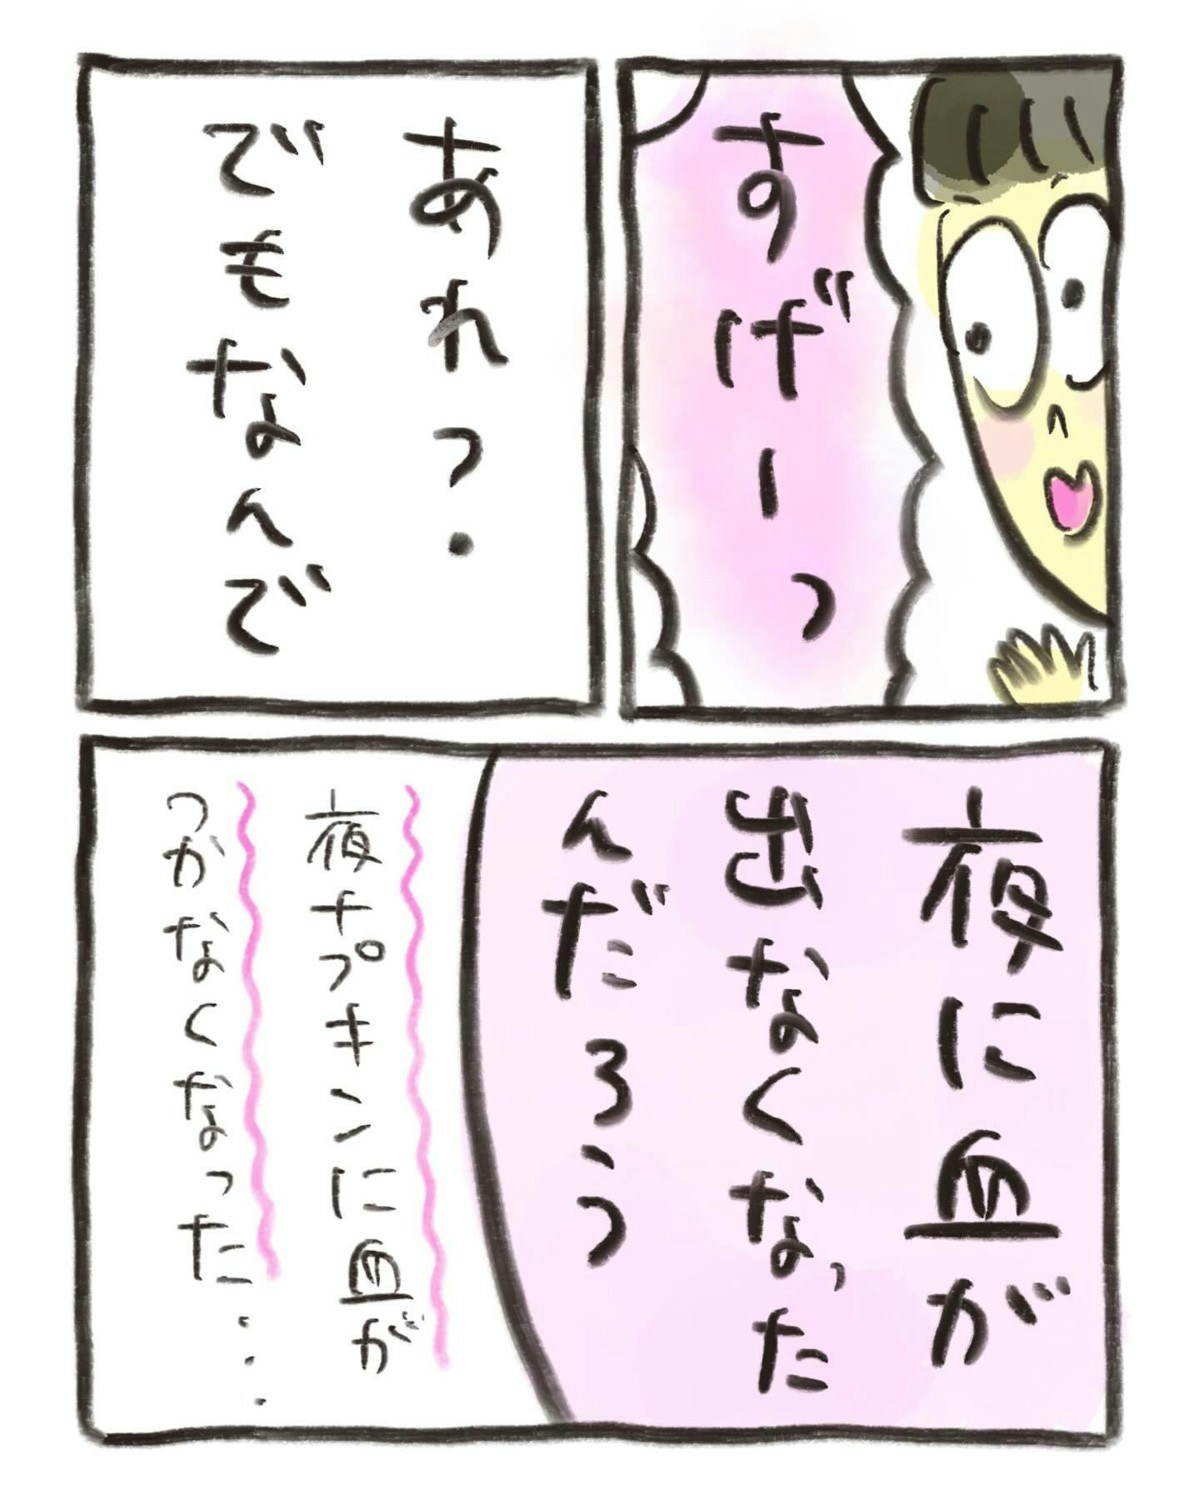 すげーっ
あれ?
でもなんで
夜に血が
出なくなった
んだろう
夜ナプキンに血が
つかなくなった・・・